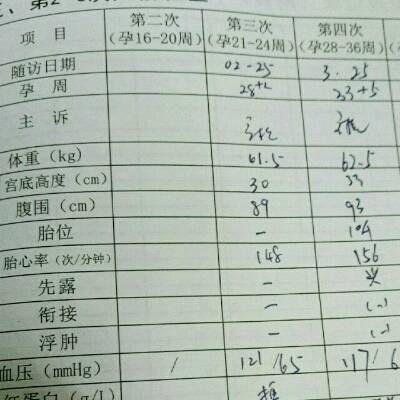 项目 第二次 第三次 第四次
(孕16-20周) (孕21-24周) (孕28-36周)
随访日期 02-25 3.25
孕周 28+2 33+5
主诉
体重(kg) 61.5 62.5
宫底高度(cm) 30 33
腹围(cm) 89 93
胎位 -
胎心率(次/分钟) 148 156
先露 -
衔接 - (-)
浮肿 - (-)
血压(mmHg) / 121/65 117/6